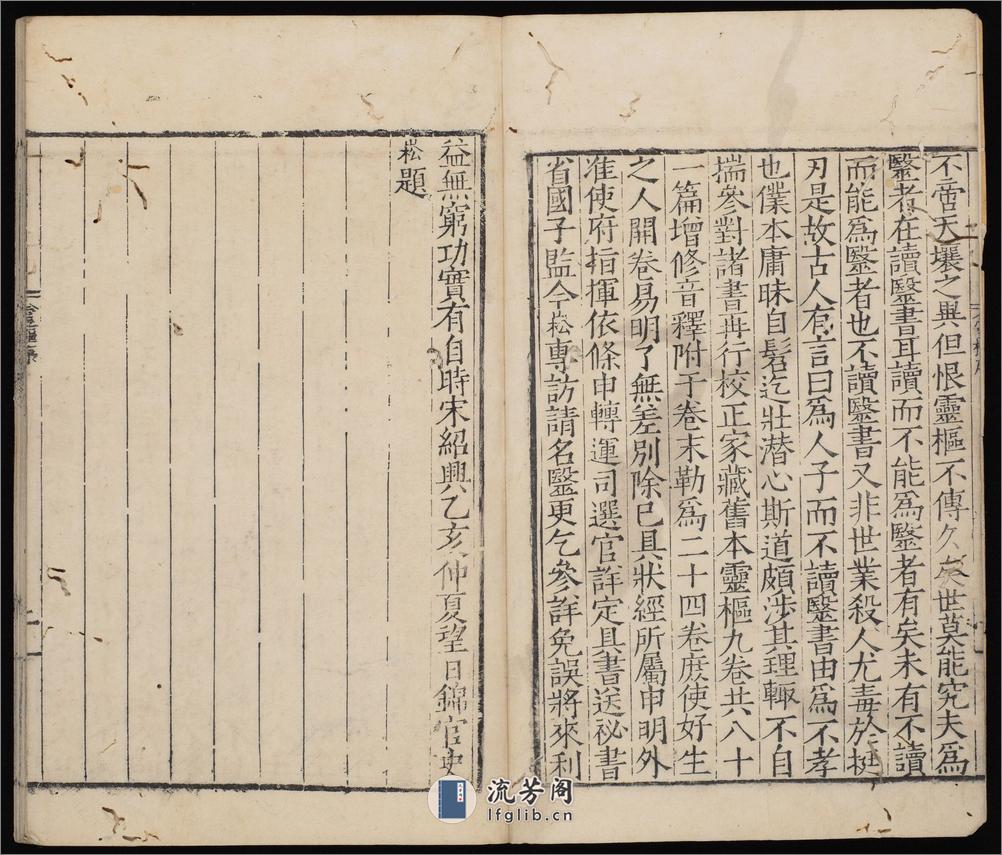 不啻天壤之異但恨靈樞不傳久矣世莫能究夫爲
醫者在讀醫書耳讀而不能爲醫者有矣未有不讀
而能爲醫者也不讀醫書又非世業殺人尤毒於梃
刃是故古人有言曰爲人子而不讀醫書由爲不孝
也僕本庸昧自髫迄壯潜心斯道頗涉其理輙不自
揣參對諸書再行校正家藏舊本靈樞九卷共八十
一篇增修音釋附于卷末勒爲二十四卷庶使好生
之人開卷易明了無差別除已具狀經所屬申明外
准使府指揮依條申轉運司選官詳定具書送祕書
省國子監今崧專訪請名醫更乞參詳免誤將來利
益無窮功實有自時宋紹興乙亥仲夏望日錦官史
崧題
流芳阁
lfglib.cn